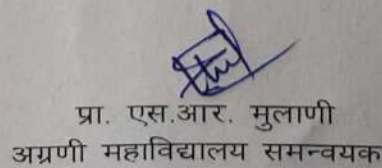 प्रा. एस.आर. मुलाणी
अग्रणी महाविद्यालय समन्वयक